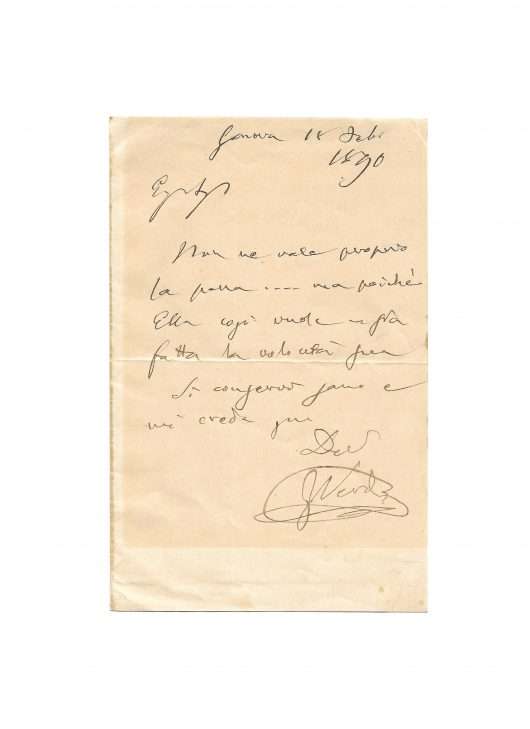 Genova 18 Feb:
1890
Non ne vale proprio
la pena .... ma poichè
Ella così vuole sia
fatta la volontà sua
Si conservi sano e
mi creda
Dev
GVerdi